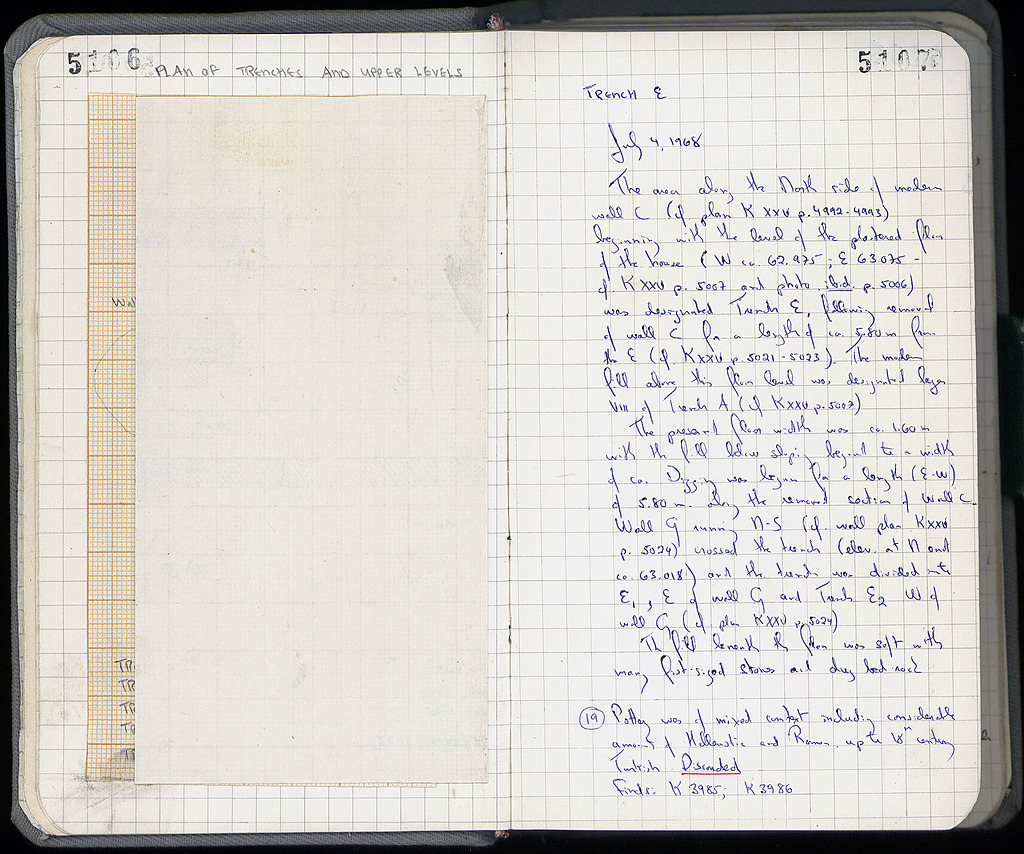 5106
PLAN OF TRENCHES AND UPPER LEVELS
Wal
TR
TR
TR
TR
T
5107
TRENCH E
July 4, 1968
The area along the North side of modern
wall C (cf. plan K XXV p. 4992-4993)
beginning with the level of the plastered floor
of the house (W ca. 62.975; E 63.075 -
cf K XXV p. 5007 and photo ibid. p. 5006)
was designated Trench E, following removal
of wall C for a length of ca. 5.80 m from
the E (cf. K XXV p. 5021-5023). The modern
fill above this floor level was designated layer
VIII of Trench A (cf. K XXV p. 5007)
The present floor width was ca. 1.60 m
with the fill below sloping beyond to a width
of ca. Digging was begun for a length (E-W)
of 5.80 m. along the removed section of Wall C.
Wall G running N-S (cf. wall plan K XXV
p. 5024) crossed the trench (elev. at N end
ca. 63.018) and the trench was divided into
E1, E of wall G and Trench E2 W of
wall G (cf plan K XXV p. 5024)
The fill beneath the floor was soft with
many fist-sized stones and
19 Pottery was of mixed context including considerable
amount of Hellenistic and Roman, up to 18th century
Turkish Discarded
Finds: K 3985; K 3986